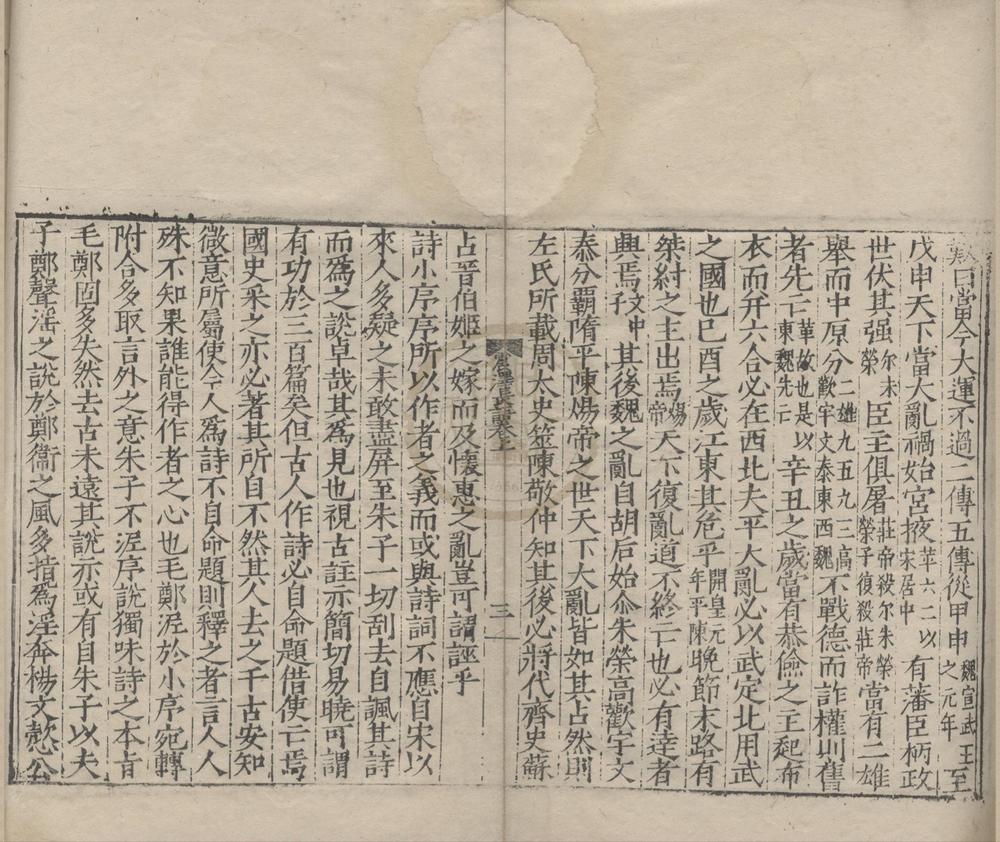 曰當今大運不過二傳五傳從甲申魏宣武王之元年至
戊申天下當大亂禍始宮夜莘六二以捄宋居中有藩臣柄政
世伏其强尔朱榮臣主俱屠莊帝殺尔朱榮榮子復殺莊帝當有二雄
舉而中原分二雄九五九三高歡宇文泰東西魏不戰德而詐權則舊
者先亡革故也是以東魏先亡辛丑之歲當有恭儉之主起布
衣而并六合必在西北夫平大亂必以武定北用武
之國也已酉之歲江東其危乎開皇元年平陳晚節末路有
桀紂之主出焉煬帝天下復亂道不終亡也必有達者
興焉文中子其後魏之亂自胡后始尒朱榮高歡宇文
泰分覇隋平陳煬帝之世天下大亂皆如其占然則
左氏所載周太史筮陳敬仲知其後必將代齊史蘇
三
占晉伯姬之嫁而及懷惠之亂豈可謂誣乎
詩小序序所以作者之義而或與詩詞不應自宋以
來人多疑之未敢盡屏至朱子一切刮去自諷其詩
而爲之說卓哉其爲見也視古註示簡切易曉可謂
有功於三百篇矣但古人作詩必自命題借使亡焉
國史采之亦必著其所自不然其人去之千古安知
微意所屬使今人爲詩不自命題則釋之者言人人
殊不知果誰能得作者之心也毛鄭泥於小序宛轉
附合多取言外之意朱子不泥序說獨味詩之本旨
毛鄭固多失然去古未遠其說亦或有自朱子以夫
子鄭聲滛之說於鄭衞之風多指爲淫奔楊文懿公